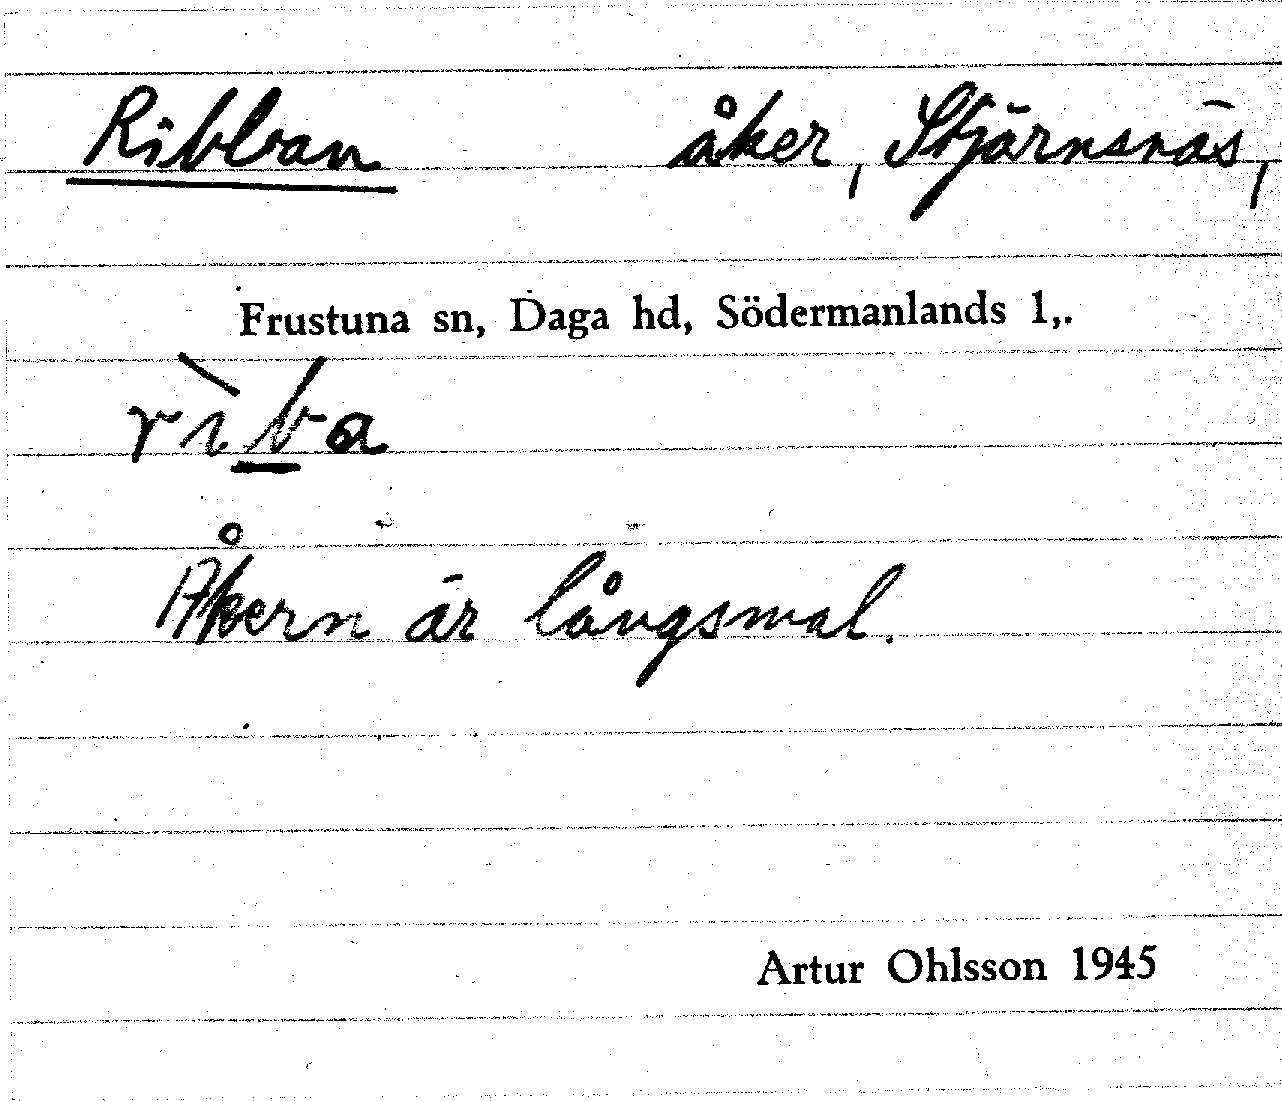 Ribban åker, Stjärnsnäs,
Frustuna sn, Daga hd, Södermanlands l,.
rìb̲a
Åkern är långsmal.
Artur Ohlsson 1945